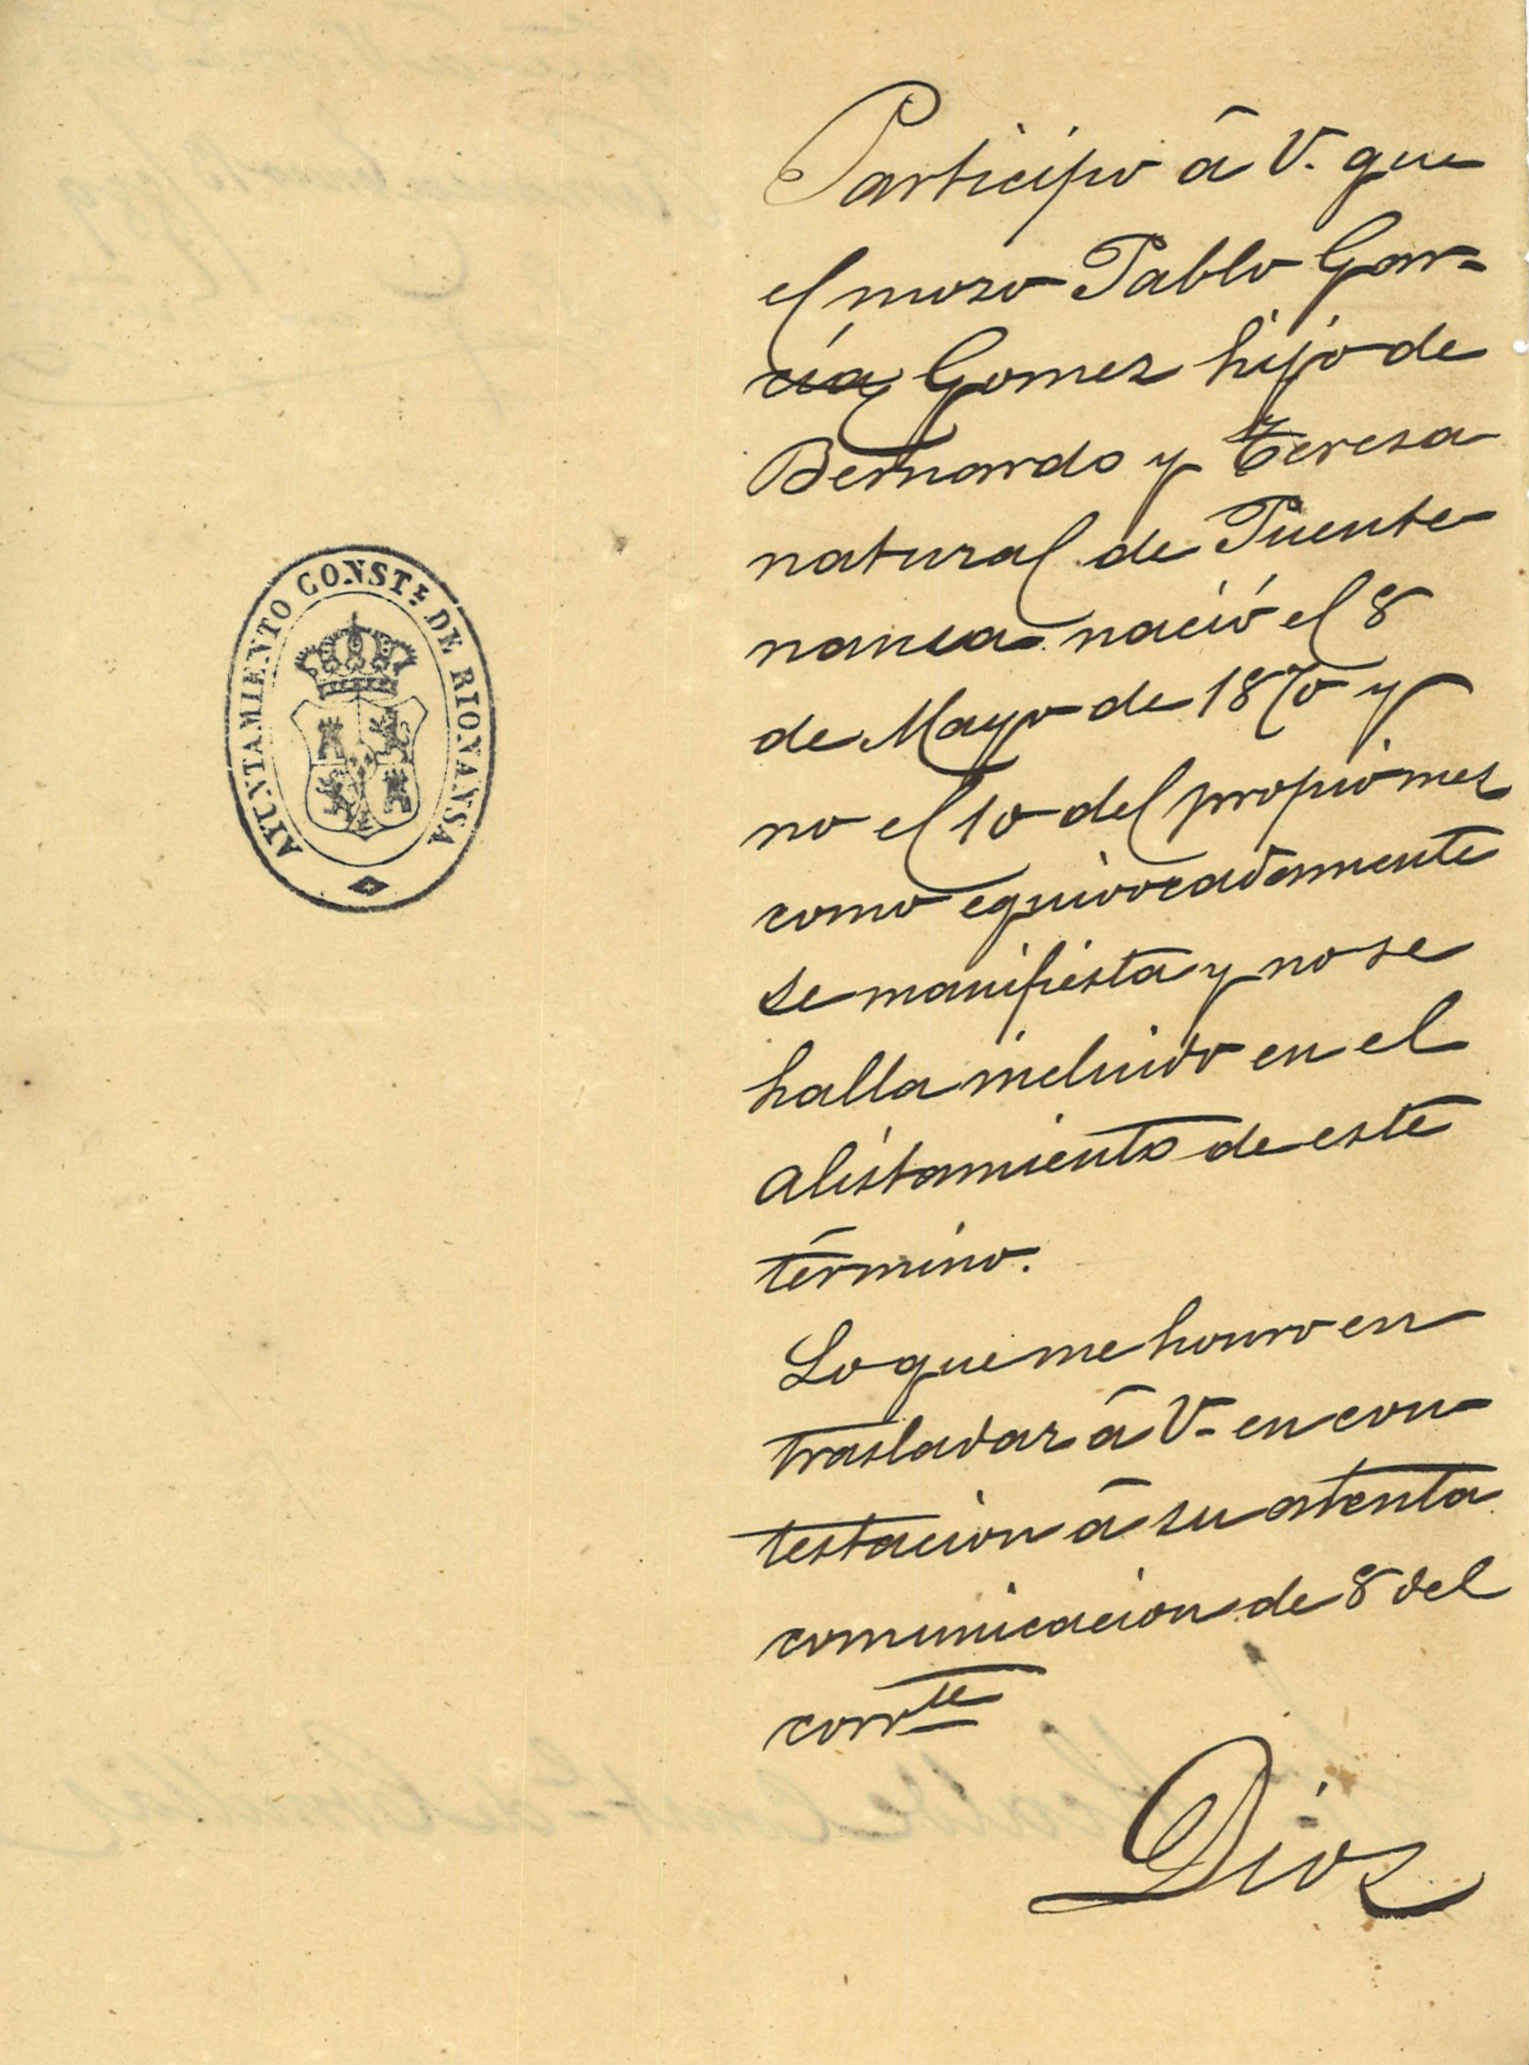 Participo á V. que
el mozo Pablo Gar-
cía Gomez hijo de
Bernardo y Teresa
natural de Puente
nansa nació el 8
de Mayo de 1870 y
no el 10 del propio mes
como equivocadamente
se manifiesta y no se
halla incluido en el
alistamiento de este
término.
Lo que me honro en
trasladar á V. en con-
testacion á su atenta
comunicacion de 8 del
corrte
Dios
AYUNTAMIENTO CONSTL. DE RIONANSA